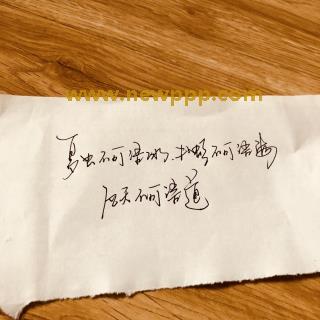 www.newppp.com
夏虫不可语冰.井蛙不可语海
夫不可语道